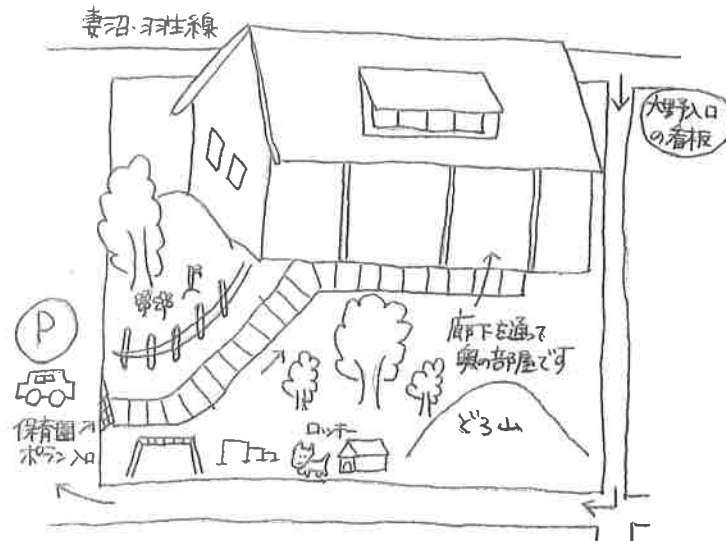 妻沼・羽生線
大野入口
の看板
P
廊下を通って
奥の部屋です
ロッキー
どろ山
保育園
ポラン入口